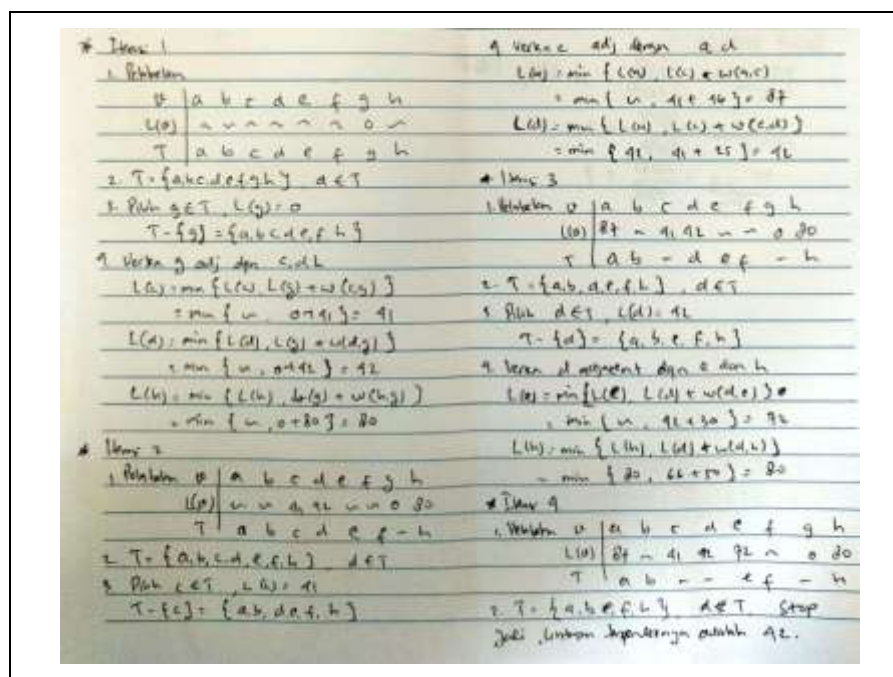 * Iterasi 1
1. Pelabelan
v | a b c d e f g h
L(v) | ~ ~ ~ ~ ~ ~ 0 ~
T | a b c d e f g h
2. T = {a,b,c,d,e,f,g,h} d ∈ T
3. Pilih g ∈ T, L(g) = 0
T - {g} = {a,b,c,d,e,f,h}
4. Verteks g adj dgn c, d, h
L(c) = min {L(c), L(g) + w(c,g)}
= min {~, 0+41} = 41
L(d) = min {L(d), L(g) + w(d,g)}
= min {~, 0+42} = 42
L(h) = min {L(h), L(g) + w(h,g)}
= min {~, 0+80} = 80
* Iterasi 2
1. Pelabelan v | a b c d e f g h
L(v) | ~ ~ 41 42 ~ ~ 0 80
T | a b c d e f - h
2. T = {a,b,c,d,e,f,h} d ∈ T
3. Pilih c ∈ T, L(c) = 41
T - {c} = {a,b,d,e,f,h}
4. Verteks c adj dengan a, d
L(a) = min {L(a), L(c) + w(a,c)
= min {~, 41 + 46} = 87
L(d) = min {L(d), L(c) + w(c,d)}
= min {42, 41 + 25} = 42
* Iterasi 3
1. Pelabelan v | a b c d e f g h
L(v) | 87 ~ 41 42 ~ ~ 0 80
T | a b - d e f - h
2. T = {a,b,d,e,f,h}, d ∈ T
3. Pilih d ∈ T, L(d) = 42
T - {d} = {a,b,e,f,h}
4. Verteks d dgn e dan h
L(e) = min {L(e), L(d) + w(d,e)}
= min {~, 42 + 30} = 72
L(h) = min {L(h), L(d) + w(d,h)}
= min {80, 66 + 50} = 80
* Iterasi 4
1. Pelabelan v | a b c d e f g h
L(v) | 87 ~ 41 42 72 ~ 0 80
T | a b - - e f - h
2. T = {a,b,e,f,h}, d ∉ T, Stop
Jadi, lintasan terpendeknya adalah 42.